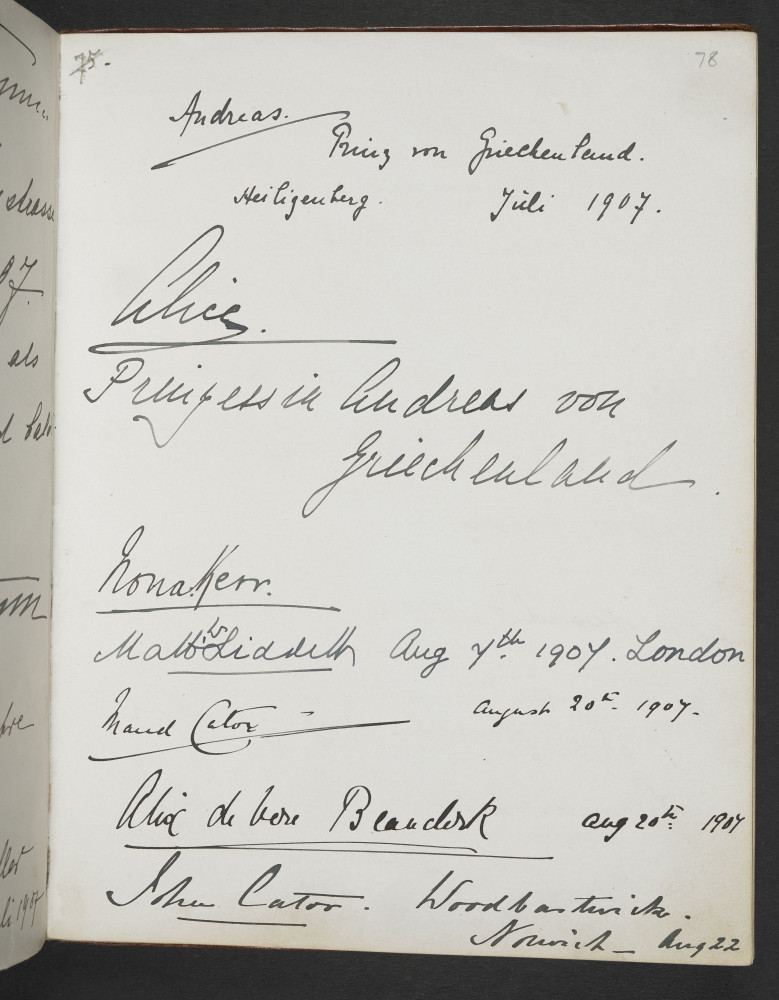 75.
78
Andreas.
Prinz von Griechenland.
Heiligenberg. Juli 1907.
Alice.
Prinzessin Andreas von
Griechenland.
Nona Kerr.
Aug 7th 1907. London
Maud Cator August 20th 1907.
Alix de Vere Beauclerk Aug 20th 1907
John Cator. Woodbastwick.
Norwich – Aug 22
als
strasse